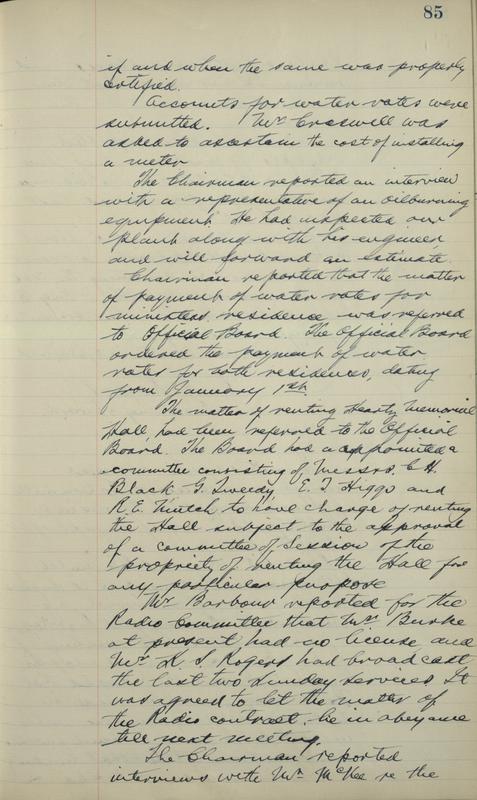 85
if and when the same was properly
certified.
Accounts for water rates were
submitted. Mr Creswell was
asked to ascertain the cost of installing
a meter
The Chairman reported an interview
with a representative of an oilburning
equipment. He had inspected our
plant along with his engineer
and will forward an estimate.
Chairman reported that the matter
of payment of water rates for
ministers residence was referred
to Official Board. The Official Board
ordered the payment of water
rates for both residences, dating
from January 1st.
The matter of renting Heartz Memorial
Hall, had been referred to the Official
Board. The Board had appointed a
committee consisting of Messrs. C H.
Black G. Tweedy E. T Higgs and
R. E. to have charge of renting
the Hall subject to the approval
of a committee of Session of the
propriety of renting the Hall for
any particular purpose
Mr Barbour reported for the
Radio Committee that Mr Burke
at present had no license and
Mr K. S. Rogers had broadcast
the last two Sunday services It
was agreed to let the matter of
the Radio contract be in abeyance
till next meeting.
The Chairman reported
interviews with Mr McKee re the